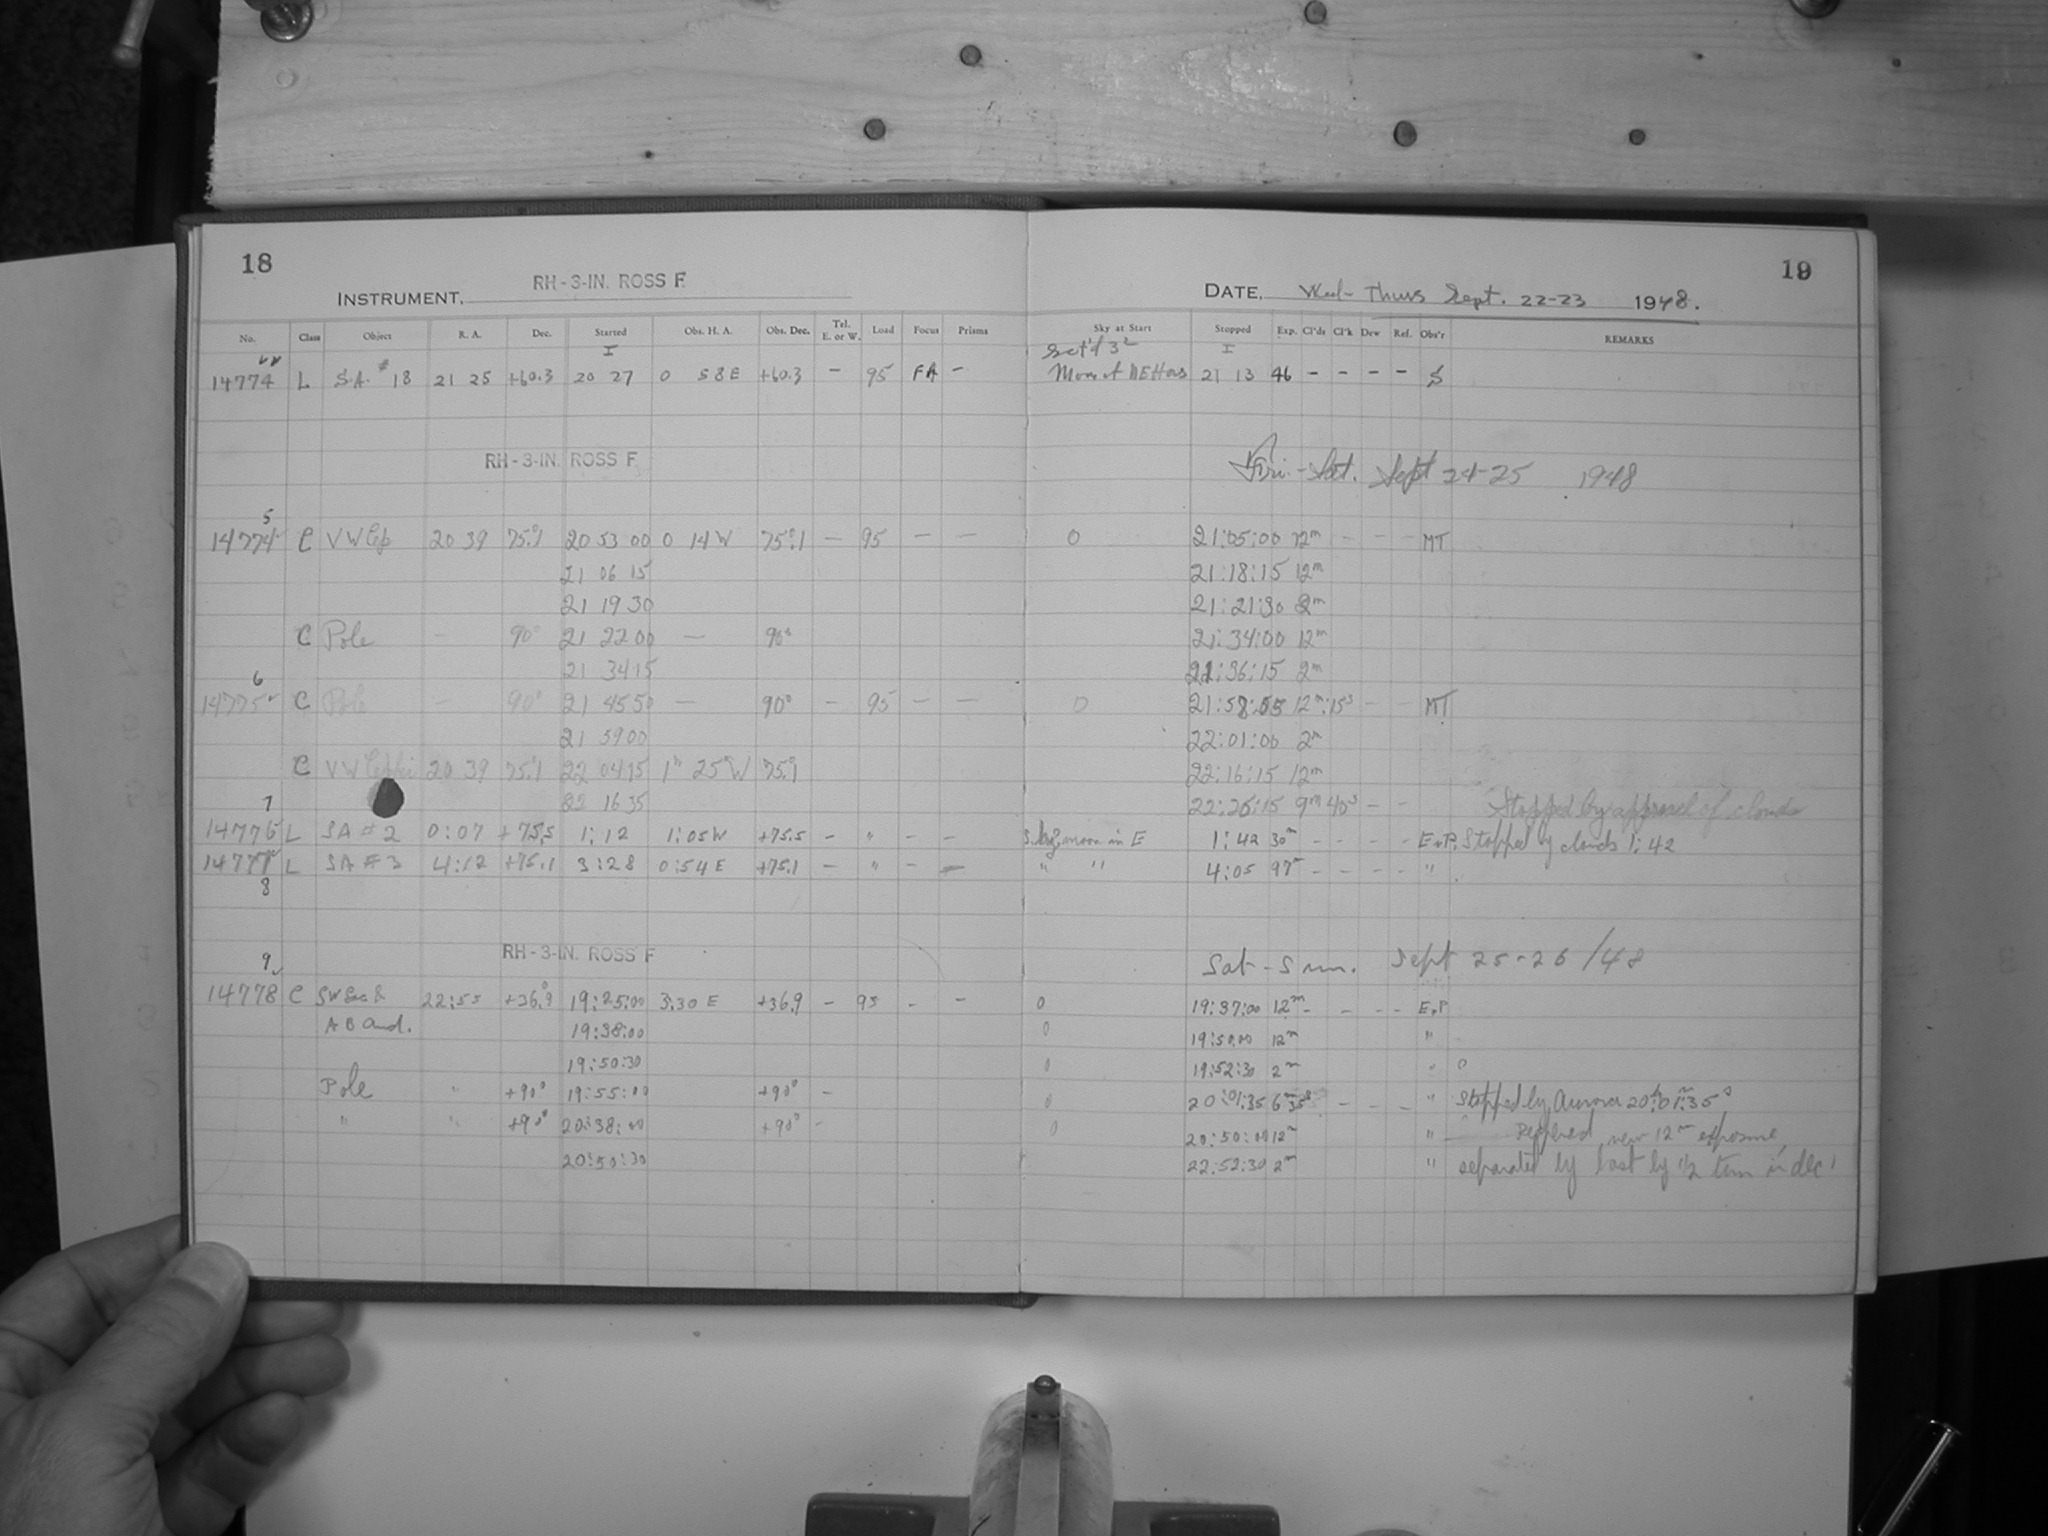 18
INSTRUMENT, RH-3-IN. ROSS F.
DATE, Wed-Thurs Sept. 22-23 1948.
19
No. Class Object R. A. Dec. Started Obs. H. A. Obs. Dec. Tel. E. or W. Load Focus Prisms Sky at Start Stopped Exp. Cl'ds Cl'k Dew Ref. Obs'r REMARKS
14774 L S.A. #18 21 25 +60.3 20 27 0 58 E +60.3 - 95 FA - 21 13 46 - - - - S
RH-3-IN. ROSS F.
Fri.-Sat. Sept 24-25 1948
5
14774 C VW Cep 20 39 75°.1 20 53 00 0 14 W 75°.1 - 95 - - 0 21:05:00 12m - - - MT
21 06 15 21:18:15 12m
21 19 30 21:21:30 2m
C Pole - 90° 21 22 00 - 90° 21:34:00 12m
21 34 15 21:36:15 2m
6
14775 C Pole - 90° 21 45 50 - 90° - 95 - - 0 21:58:05 12m:15s - - MT
21 59 00 22:01:00 2m
C VW Cephei 20 39 75°.1 22 04 15 1h 25m W 75°.1 22:16:15 12m
22 16 35 22:26:15 9m 40s - - Stopped by approach of clouds
7
14776 L SA #2 0:07 +75.5 1:12 1:05 W +75.5 - " - - moon in E 1:42 30m - - - - E.P. Stopped by clouds 1:42
14777 L SA #3 4:12 +75.1 3:28 0:54 E +75.1 - " - - " " 4:05 97m - - - - "
8
RH-3-IN. ROSS F
Sat-Sun. Sept 25-26/48
9
14778 C SW Lac & 22:55 +36.9 19:25:00 3:30 E +36.9 - 95 - - 0 19:37:00 12m - - - - E.P
AB And. 19:38:00 0 19:50:00 12m "
19:50:30 0 19:52:30 2m " 0
Pole " +90° 19:55:00 +90° - 0 20:01:35 6m35s - - - " Stopped by Aurora 20h01m35s
" " +90° 20:38:00 +90° - 0 20:50:00 12m " new 12m exposure
20:50:30 22:52:30 2m " separated by last by 1/2 turn in dec